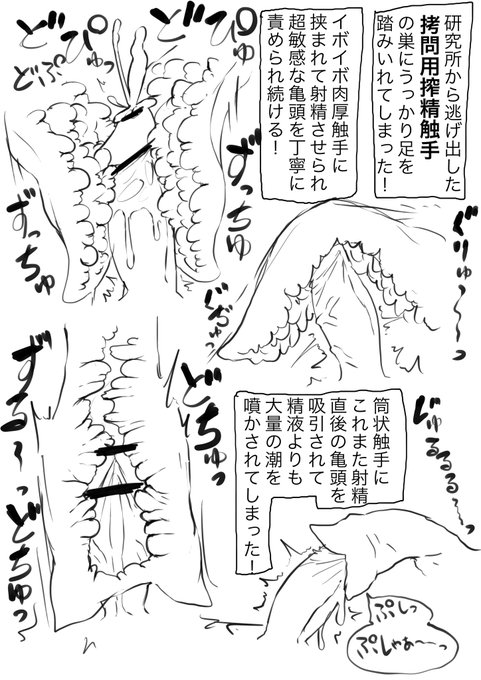 研究所から逃げ出した
拷問用搾精触手
の巣にうっかり足を
踏みいれてしまった！
イボイボ肉厚触手に
挟まれて射精させられ
超敏感な亀頭を丁寧に
責められ続ける！
ぐりゅっ〜〜っ
ぐぢゅっ
どぴゅっ
どぴゅっ
どぷっ
ずっちゅ
ずっちゅ
筒状触手に
これまた射精
直後の亀頭を
吸引されて
精液よりも
大量の潮を
噴かされてしまった！
じゅるるる〜〜っ
ぷしっ
ぷしゃあ〜〜っ
どちゅっ
ずる〜っ
どちゅっ